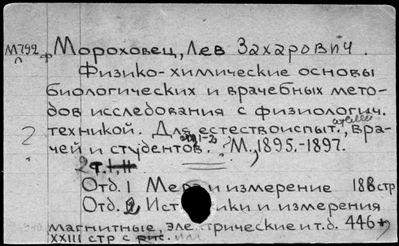 М792 Мороховец, Лев Захарович.
Физико-химические основы
биологических и врачебных мето-
дов исследования с физиологич.
техникой. Для естествоиспытателей, вра-
2
чей и студентов. М., 1895.-1897.
2 т. I, II
Отд. 1 Мера и измерение 188 стр
Отд. 2 Источники и измерения
магнитные, электрические и т.д. 446 +
XXIII стр с рис.